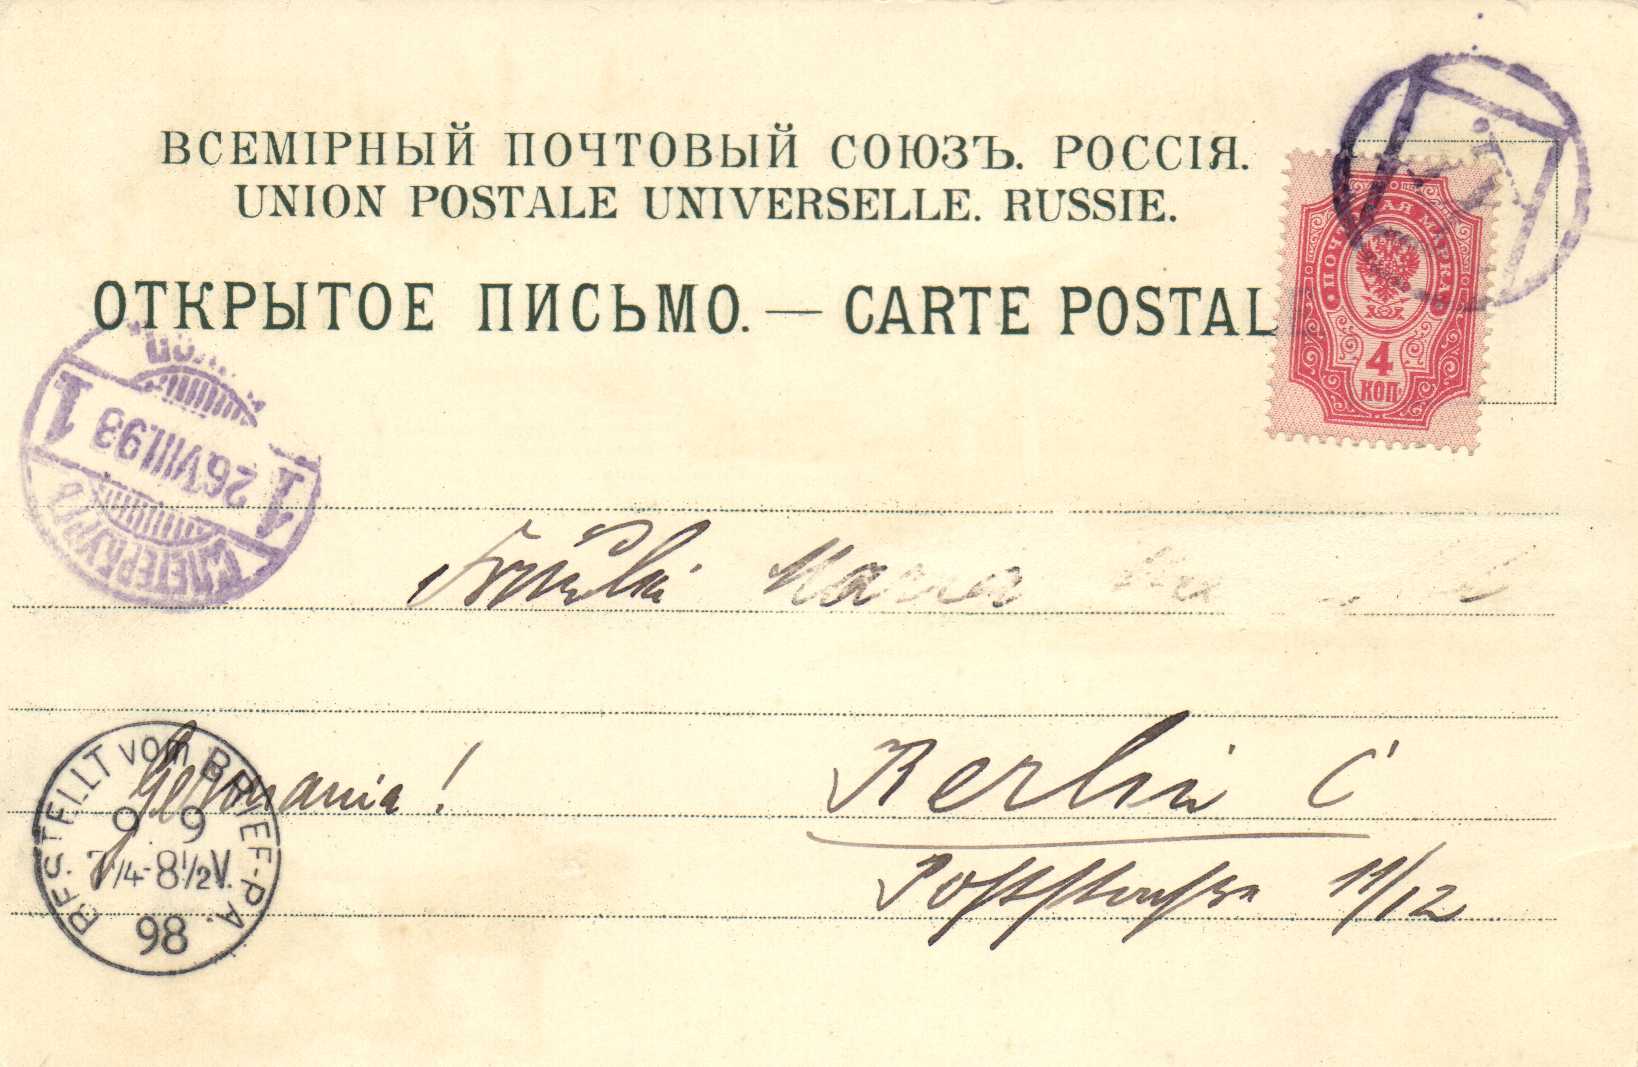 ВСЕМІРНЫЙ ПОЧТОВЫЙ СОЮЗЪ. РОССІЯ.
UNION POSTALE UNIVERSELLE. RUSSIE.
ОТКРЫТОЕ ПИСЬМО. — CARTE POSTAL
ПОЧТОВАЯ МАРКА
4
КОП.
1
26.VIII.98
1
С.ПЕТЕРБУРГЪ
Fräulein
Germania!
Berlin C
Poststraße 11/12
BESTELLT vom BRIEF-P.A.
9 9
7 1/4-8 1/2 V.
98